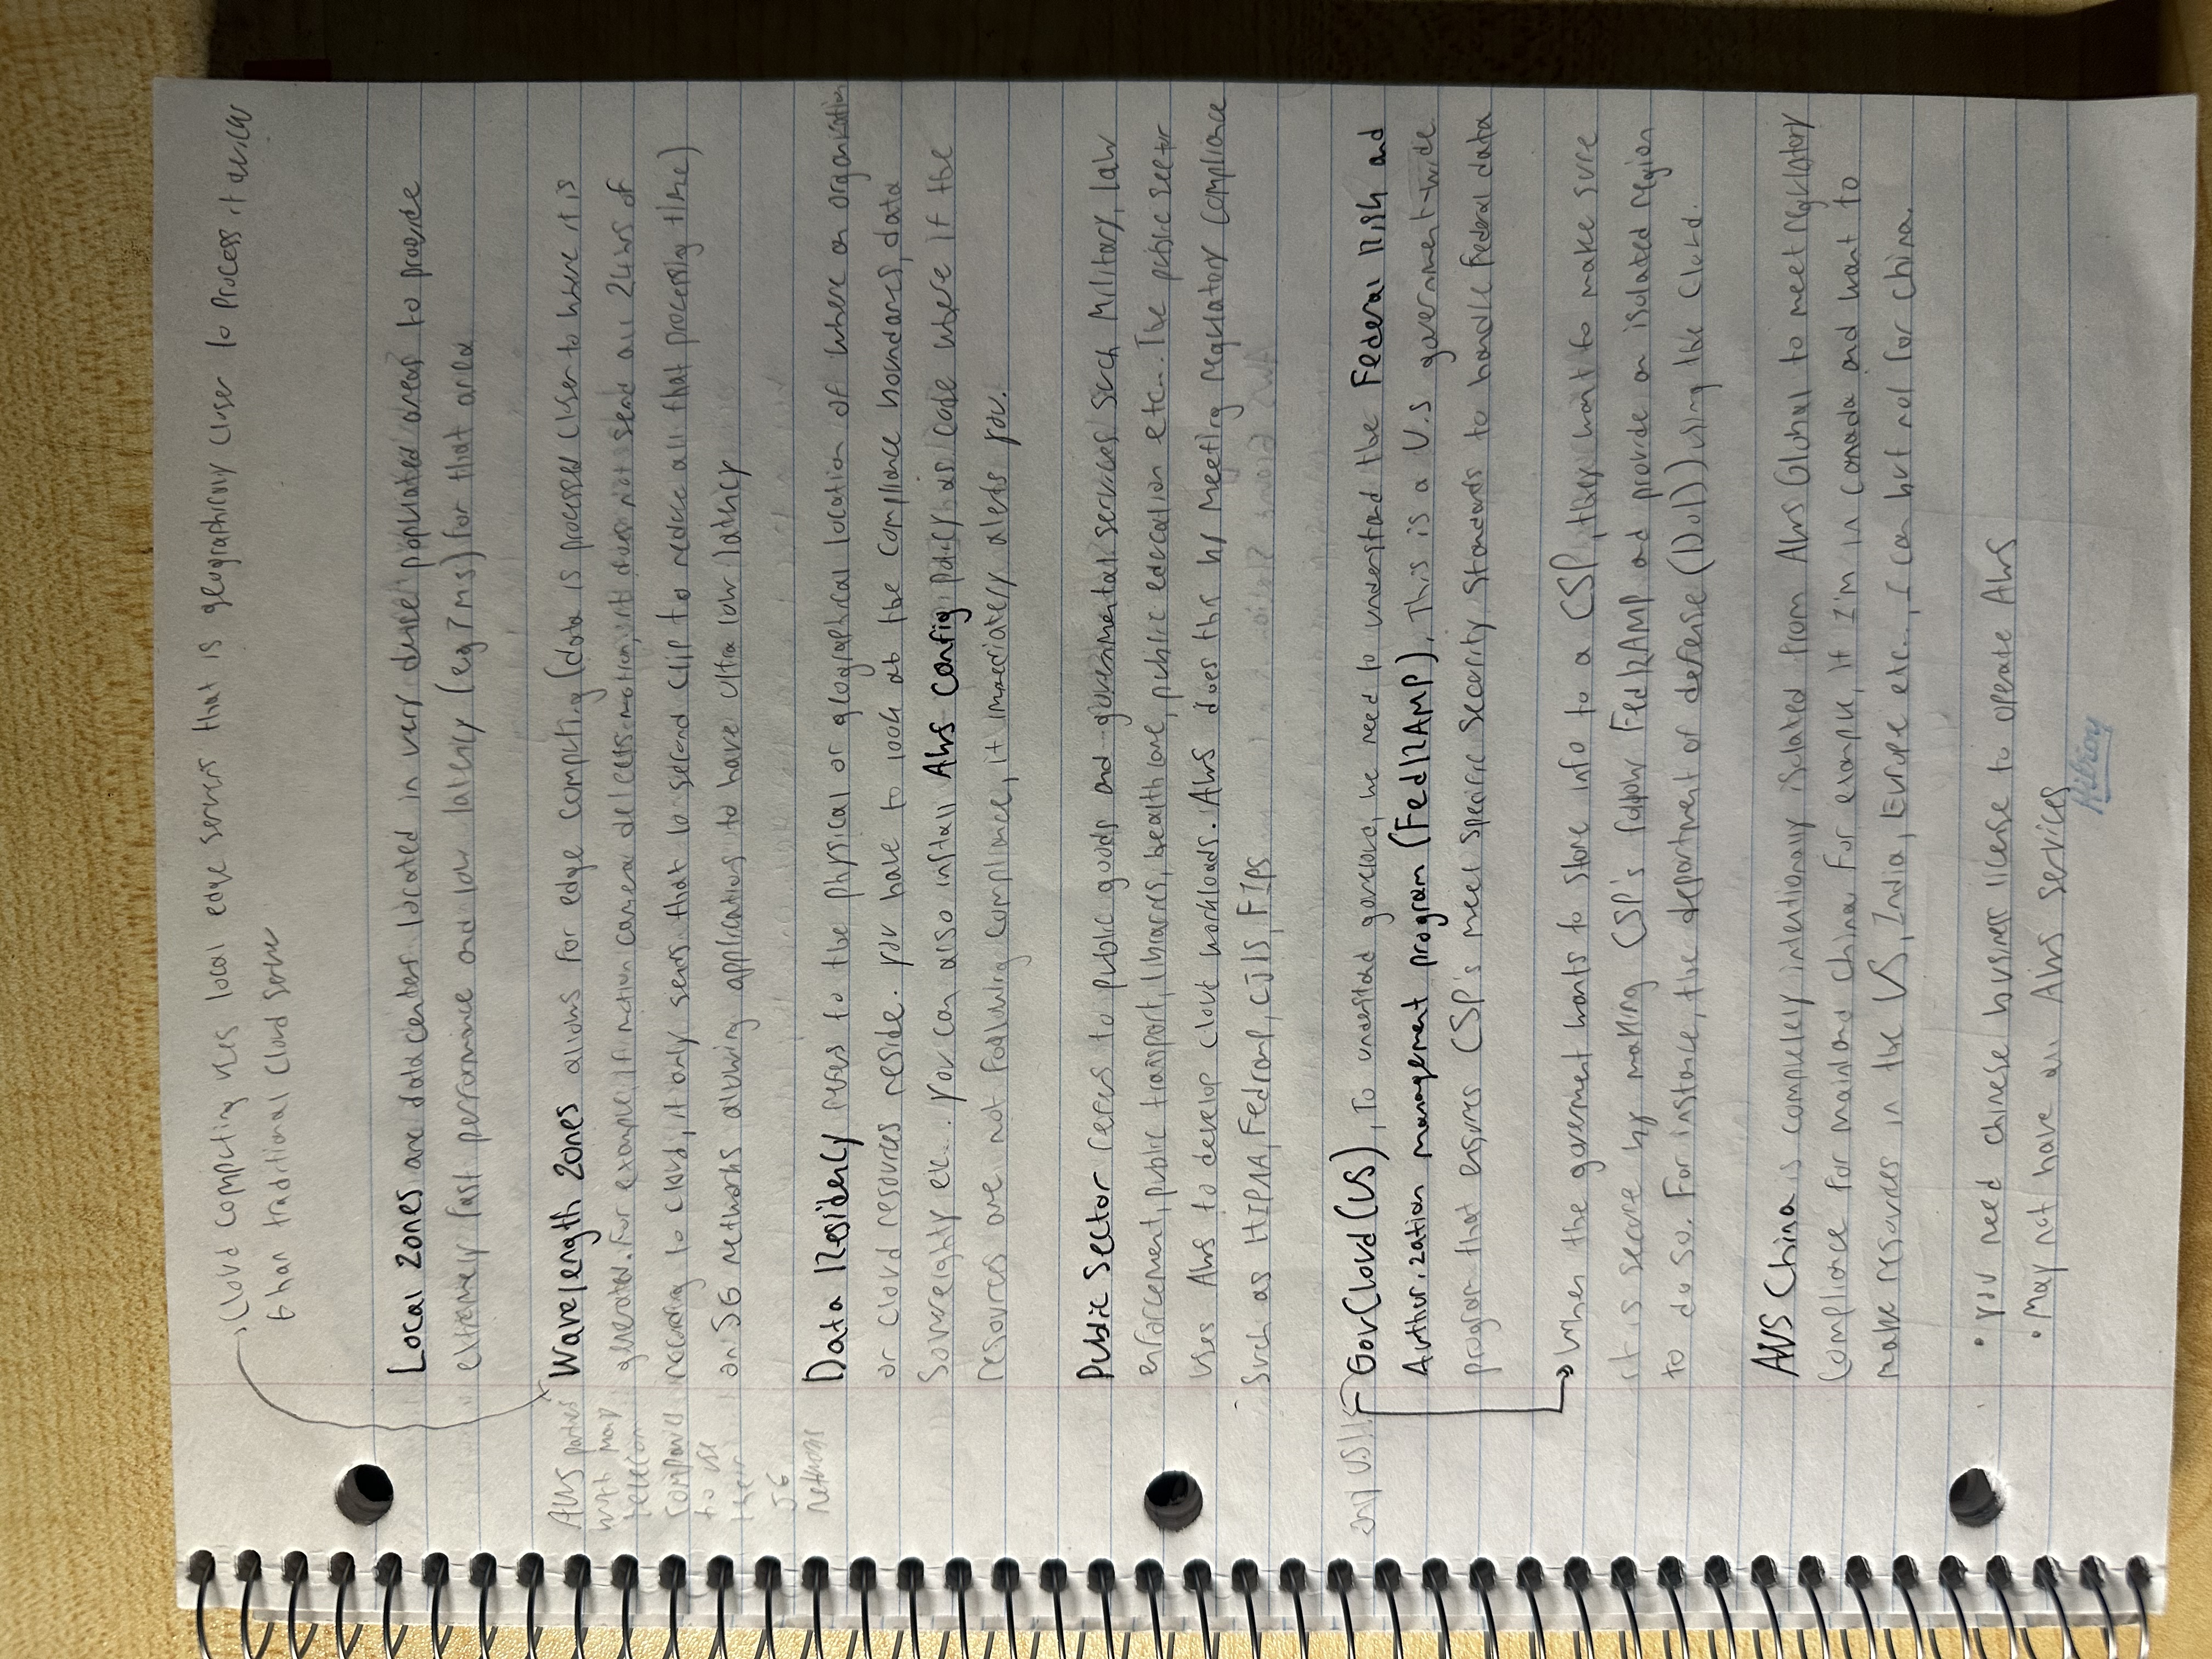 Cloud computing uses local edge servers that is geographically closer to process it quicker
than traditional cloud server
Local Zones are datacenters located in very dense populated areas to provide
extremely fast performance and low latency (eg 7ms) for that area
AWS partners
with many
telecom
companies
to use
their
5G
networks
Wavelength Zones allows for edge computing (data is processed closer to where it is
generated. For example, if motion camera detects motion, it does not send all 24hrs of
recording to cloud, it only sends that 10 second clip to reduce all that processing time)
on 5G networks allowing applications to have ultra low latency
Data Residency refers to the physical or geographical location of where an organization
or cloud resources reside. You have to look at the compliance boundaries, data
Sovereighty etc.. You can also install AWS Config policy as code where if the
resources are not following compliance, it immediately alerts you.
Public Sector refers to public goods and governmental services such Military, law
enforcement, public transport, libraries, healthcare, public education etc... The public sector
uses AWS to develop cloud workloads. AWS does this by meeting regulatory compliance
such as HIPAA, Fedramp, CJIS, FIPS
only US!!
GovCloud (US), To understand govcloud, we need to understand the Federal Risk and
Authorization management program (FedRAMP). This is a U.S government-wide
program that ensures CSP's meet specific security standards to handle Federal data
When the goverment wants to store info to a CSP, they want to make sure
it is secure by making CSP's follow FedRAMP and provide an isolated region
to do so. For instance, the department of defense (DoD) using the Cloud.
AWS China is completely intentionally isolated from AWS Global to meet regulatory
compliance for mainland China. For example, if I'm in Canada and want to
make resources in the US, India, Europe etc..., I can but not for China.
• You need chinese business license to operate AWS
• May not have all AWS services
Hilroy